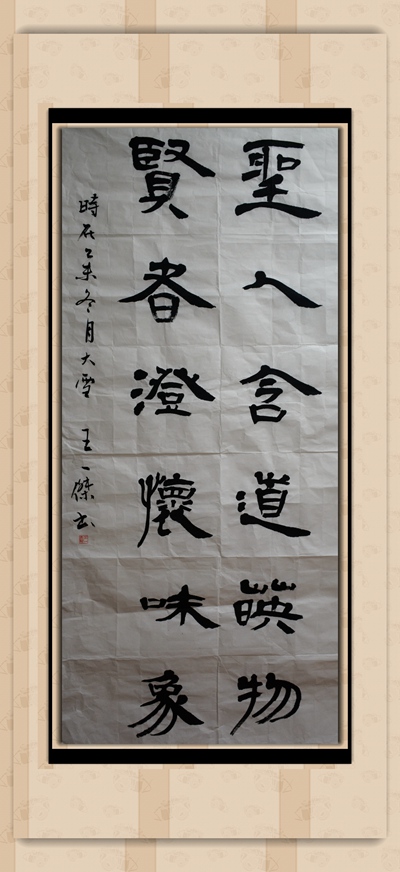 聖人含道暎物
賢者澄懷味象
時在乙未冬月大雪 王一傑书